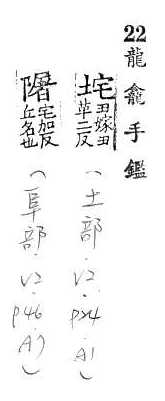 22龍龕手鑑
垞田嫁田革二反
(土部.V2.p24.A1)
宅加反丘名也
(阜部.V2.p46.A7)